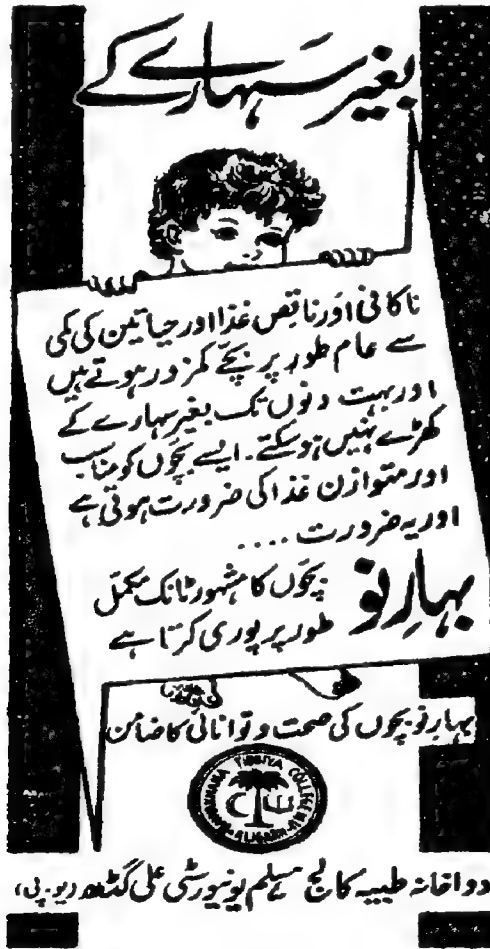 بغیر سہارے کے
ناکافی اور ناقص غذا اور حیاتین کی کمی
سے عام طور پر بچے کمزور ہوتے ہیں
اور بہت دنوں تک بغیر سہارے کے
کھڑے نہیں ہو سکتے۔ ایسے بچوں کو مناسب
اور متوازن غذا کی ضرورت ہوتی ہے
اور یہ ضرورت ....
بہارِ نو
بچوں کا مشہور ٹانک مکمل
طور پر پوری کرتا ہے
بہارِ نو بچوں کی صحت و توانائی کا ضامن
DAWAKHANA TIBBIYA COLLEGE
ALIGARH
دواخانہ طبیہ کالج مسلم یونیورسٹی علی گڈھ (یو۔پی)